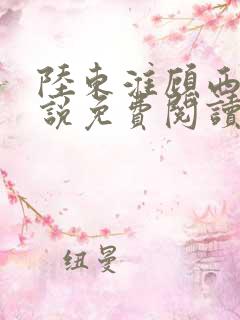 陸東淮顧西
說免費閱讀
纽曼